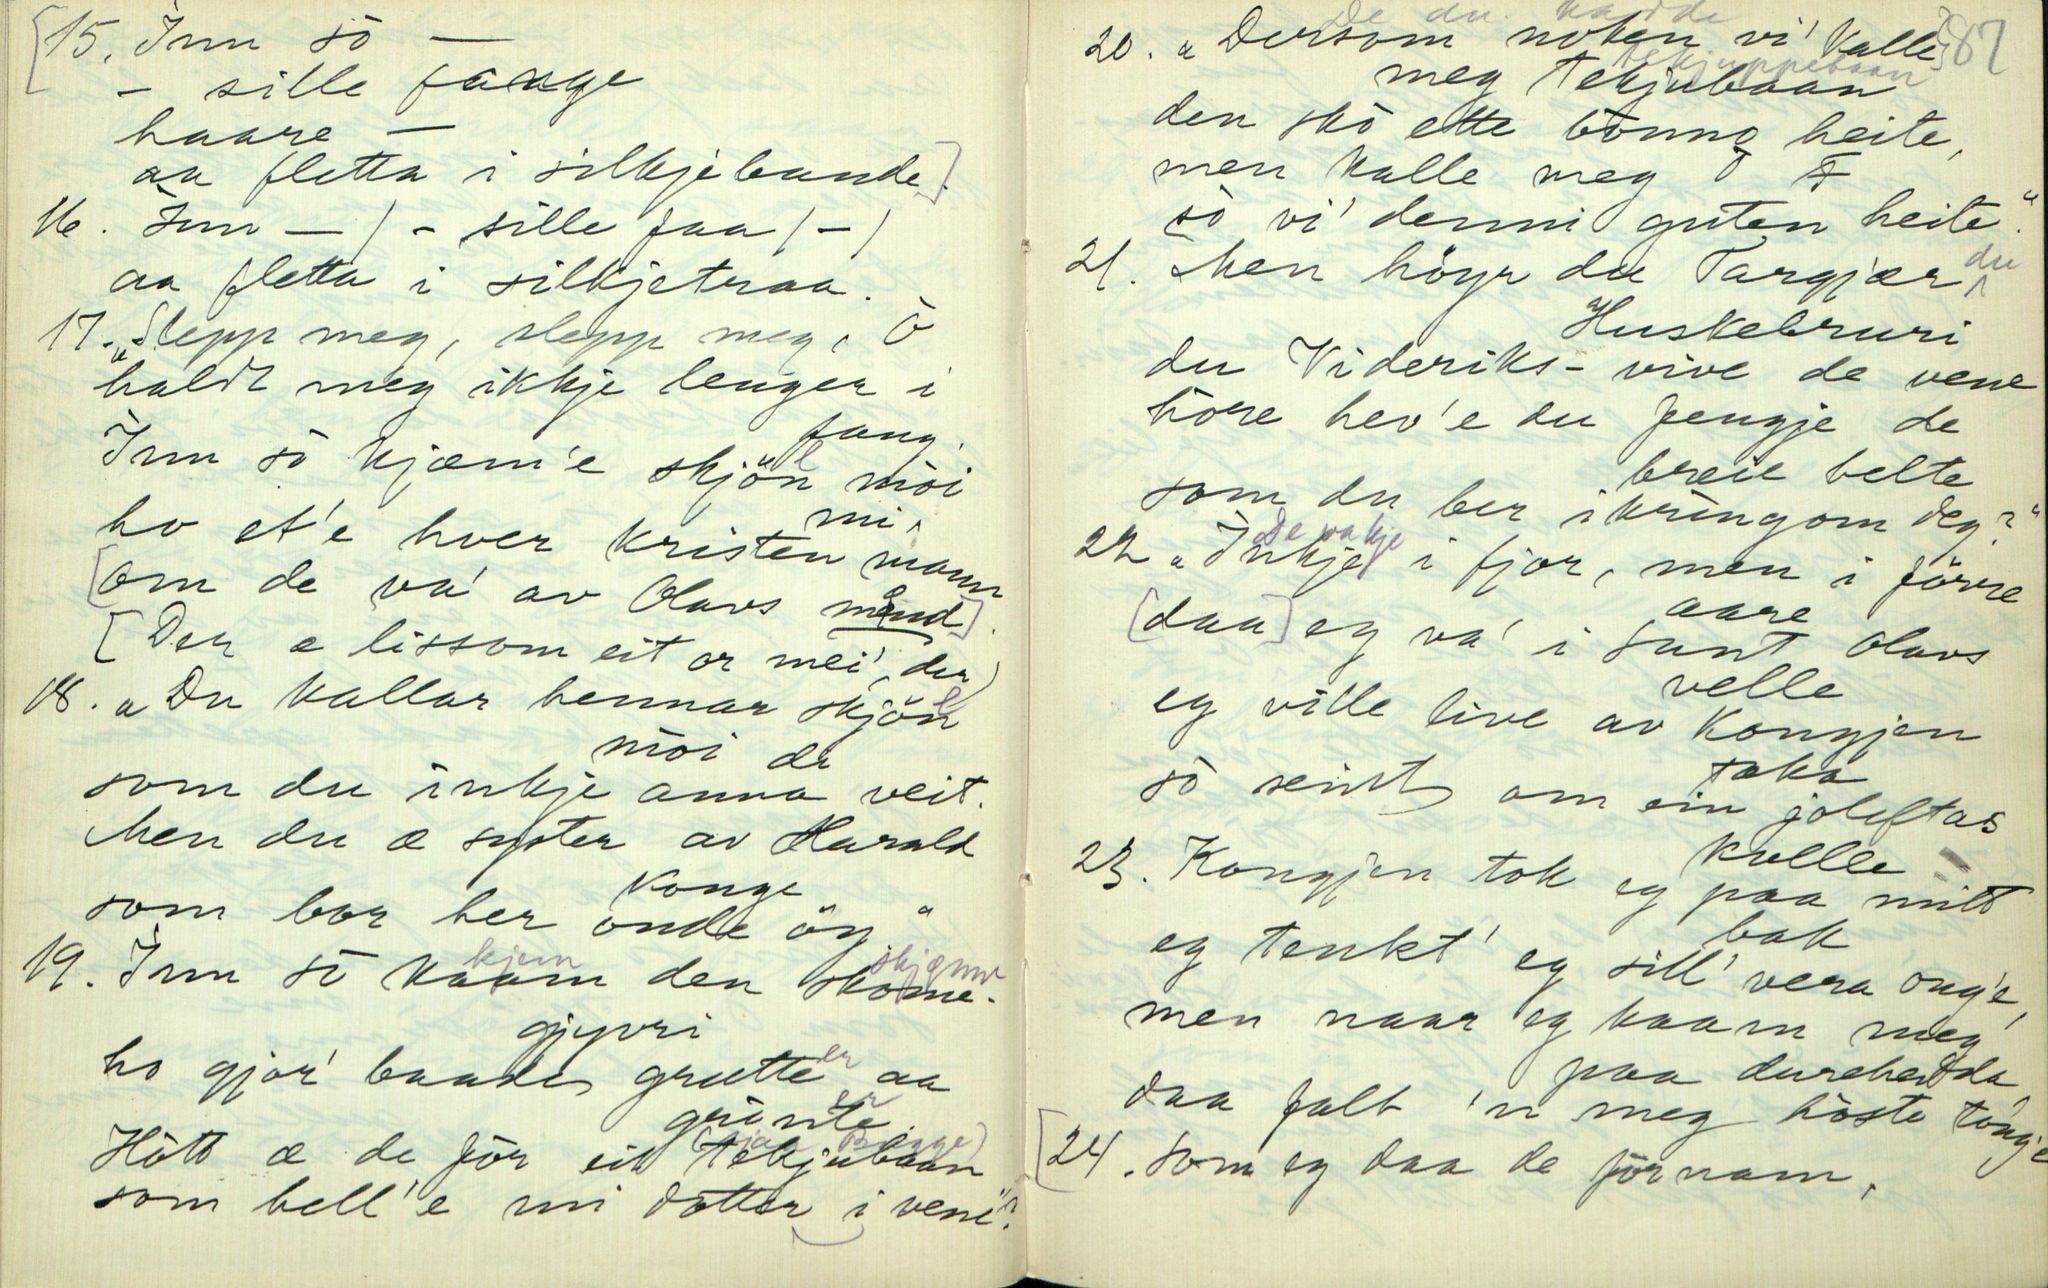 [15. Inn sò —
– sille fange
haare —
aa fletta i silkjebande.]
16. Inn — / - sille faa / – /
aa fletta i silkjetraa.
17. „Slepp meg, slepp meg, ò
haldt meg ikkje lenger i
fang.
Inn sò kjæm'e skjön mòi
mi,
ho et'e hver kristen mann
[om de va' av Olavs mend].
[Der æ lissom eit or mei', der)
18. „Du kallar hennar skjön
mòi di
som du inkje anna veit.
Men du æ syster av Harald
konge
som bor her onde öy"
19. Inn sò kaam den skome-
kjem skjemme
gjyvri
ho gjor' baade grætte aa
er
grinte.
er
Hòtt æ deför eit tekjubaan
som hell'e mi dotter i vene"?
87
De du kadde
20. „Dersom noken vi' kalle
tekjuppebaan
meg tekjubaan
den skò ette bònno heite,
men kalle meg
sò vi' denni guten heite."
21. Men höyr du Targjær du
Huskebruri
du Videriks-vive de vene
hòre hev'e du fengje de
breie belte
som du ber ikringom deg?"
De va kje
22 „Inkje i fjor, men i förre
aare
[daa] eg va' i Sant Olavs
velle
eg ville live av kongjen
taka
sò seint om ein joleftas
kvelle
23. Kongjen tok eg paa mitt
bak
eg tenkt' eg sill' vera ong'e,
men naar eg kaam meg
paa durehedda
daa falt 'n meg hòste tòngje
[24. Som eg daa de förnam,